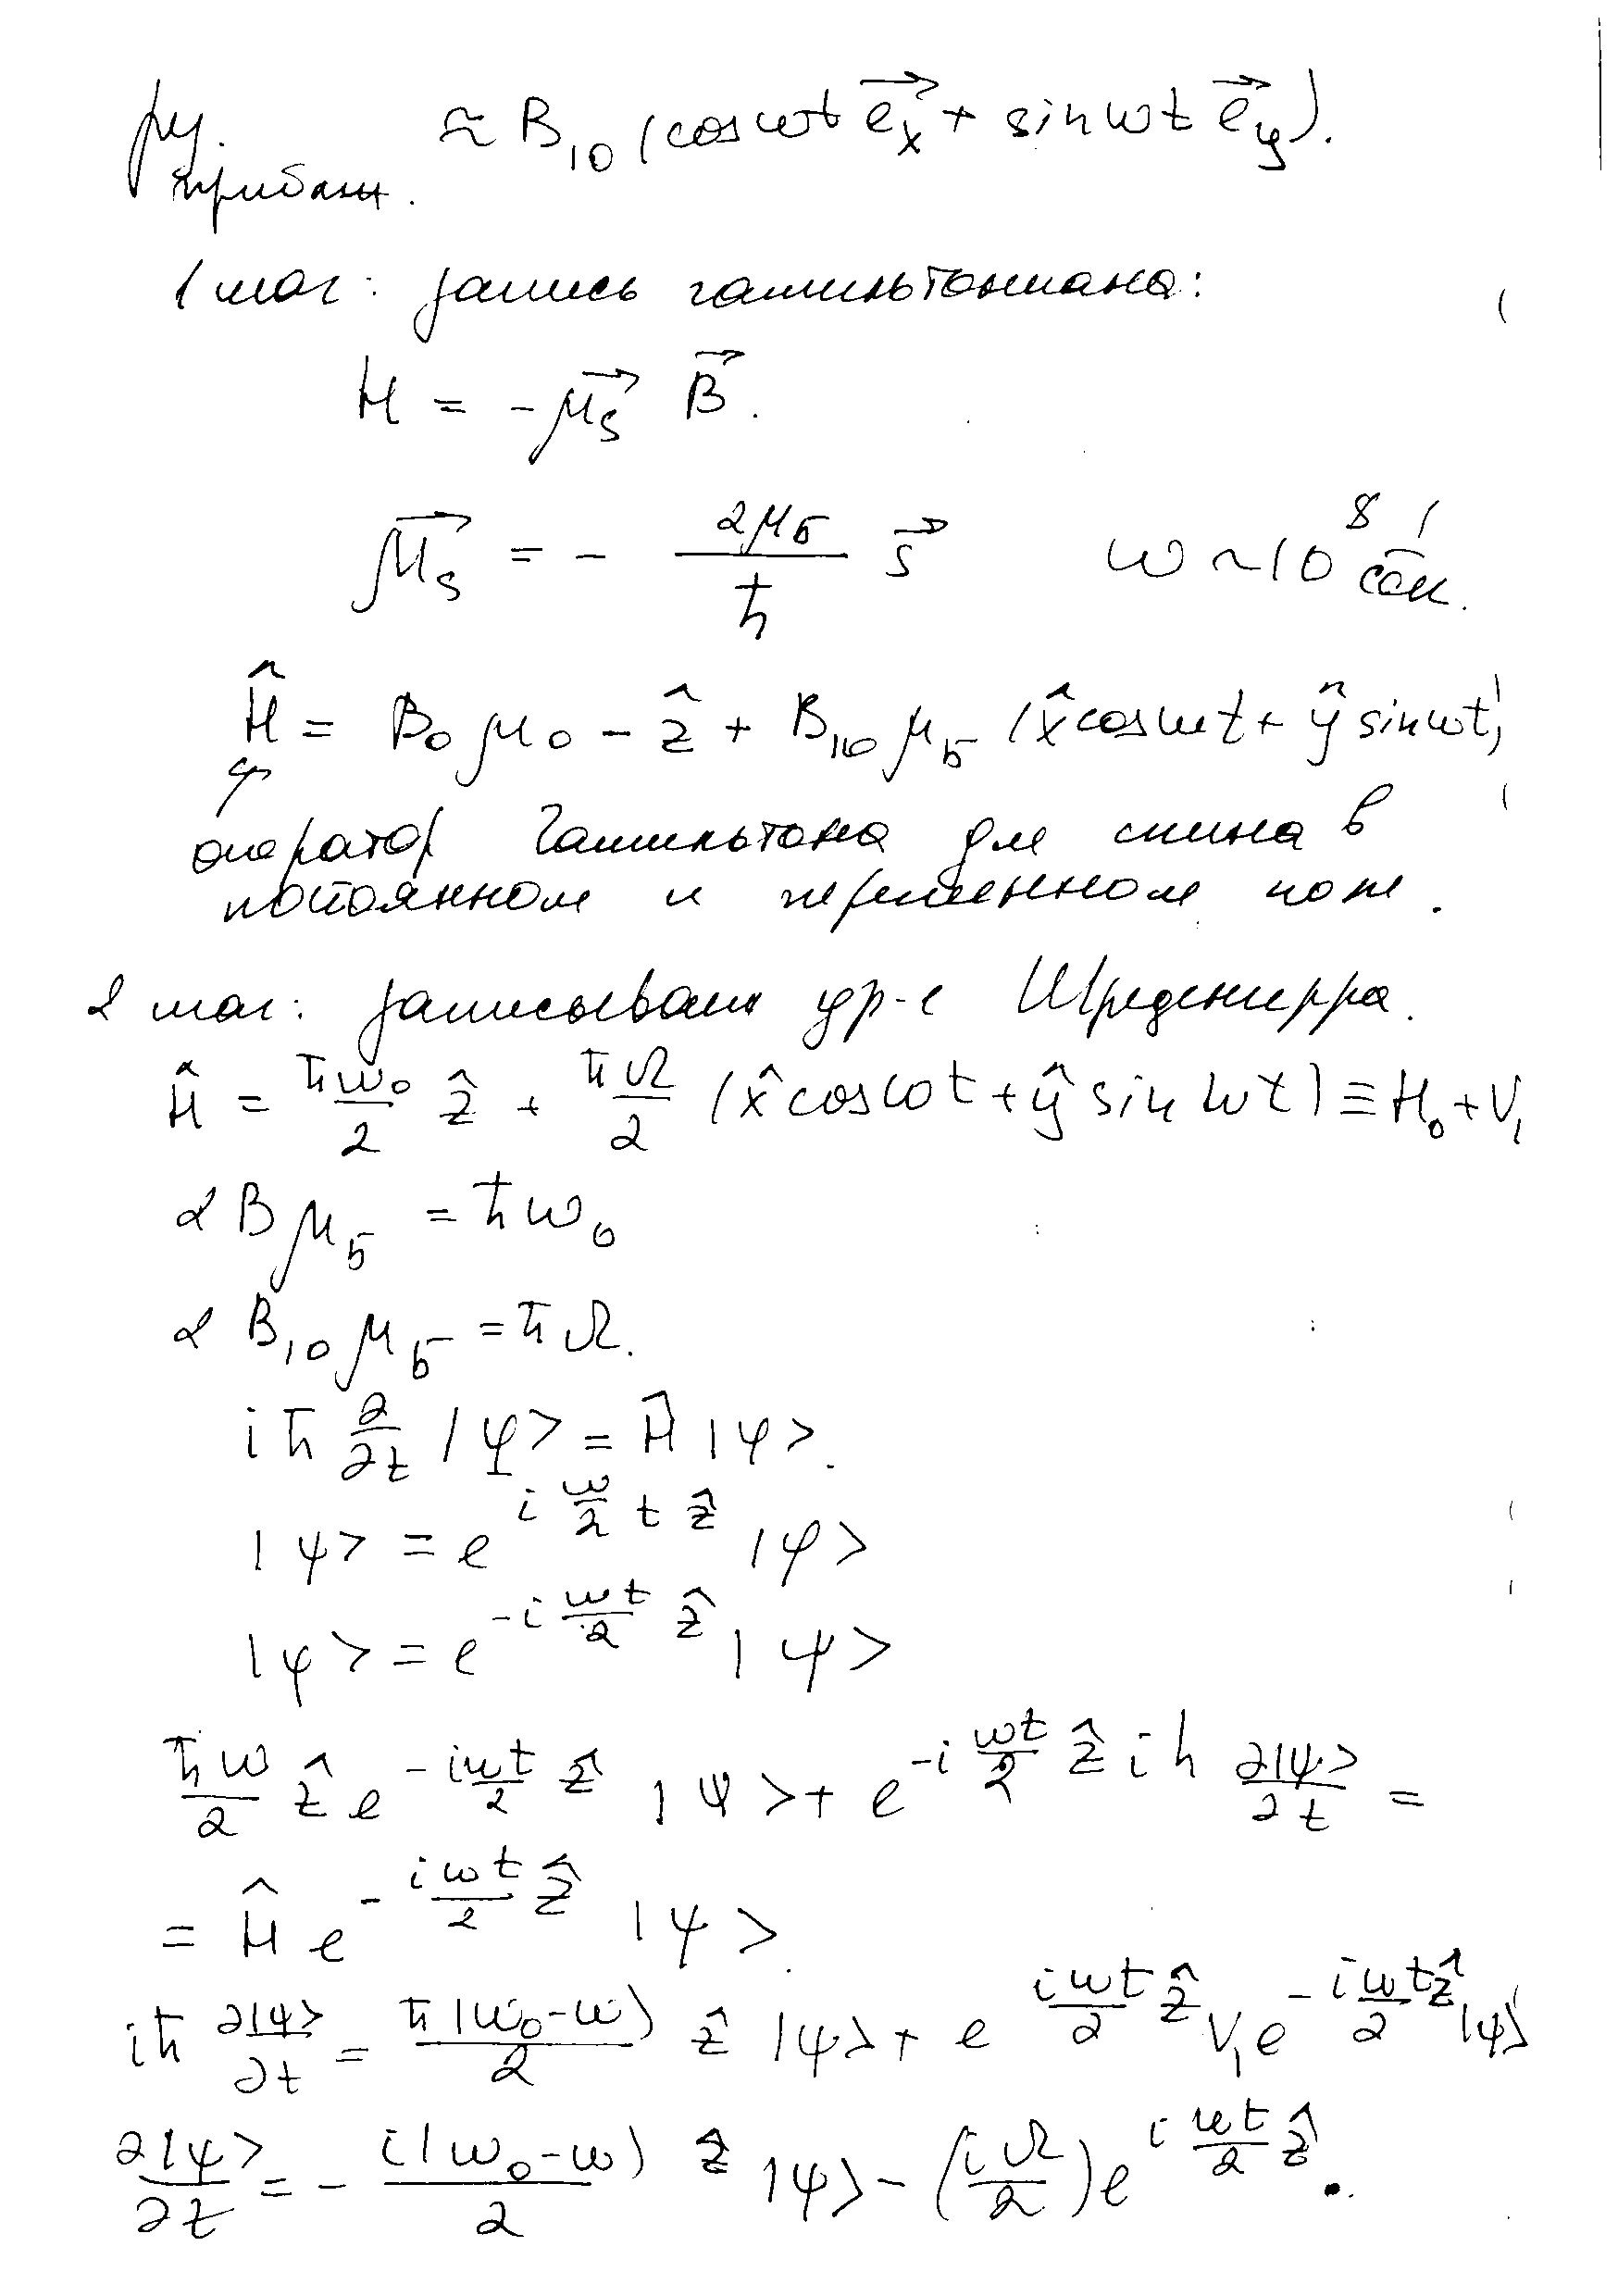 ≈ B₁₀ (cos ωt e⃗ₓ + sin ωt e⃗ᵧ).
приближ.
1 шаг: запись гамильтониана:
H = -μ⃗ₛ B⃗.
μ⃗ₛ = - 2μ_Б/ħ s⃗ ω ~ 10⁸ 1/сек.
Ĥ = B₀ μ₀ - ẑ + B₁₀ μ_Б (x̂ cos ωt + ŷ sin ωt)
оператор Гамильтона для спина в
постоянном и переменном поле.
2 шаг: записываем ур-е Шредингера.
Ĥ = ħω₀/2 ẑ + ħΩ/2 (x̂ cos ωt + ŷ sin ωt) ≡ H₀ + V₁
2 B μ_Б = ħω₀
2 B₁₀ μ_Б = ħΩ.
iħ ∂/∂t |φ> = Ĥ |φ>.
|ψ> = e^{i ω/2 t ẑ} |φ>
|φ> = e^{-i ωt/2 ẑ} |ψ>
ħω/2 ẑ e^{-iωt/2 ẑ} |ψ> + e^{-i ωt/2 ẑ} iħ ∂|ψ>/∂t =
= Ĥ e^{-iωt/2 ẑ} |ψ>.
iħ ∂|ψ>/∂t = ħ(ω₀-ω)/2 ẑ |ψ> + e^{iωt/2 ẑ} V₁ e^{-iωt/2 ẑ} |ψ>
∂|ψ>/∂t = - i(ω₀-ω)/2 ẑ |ψ> - (iΩ/2) e^{i ωt/2 ẑ} •